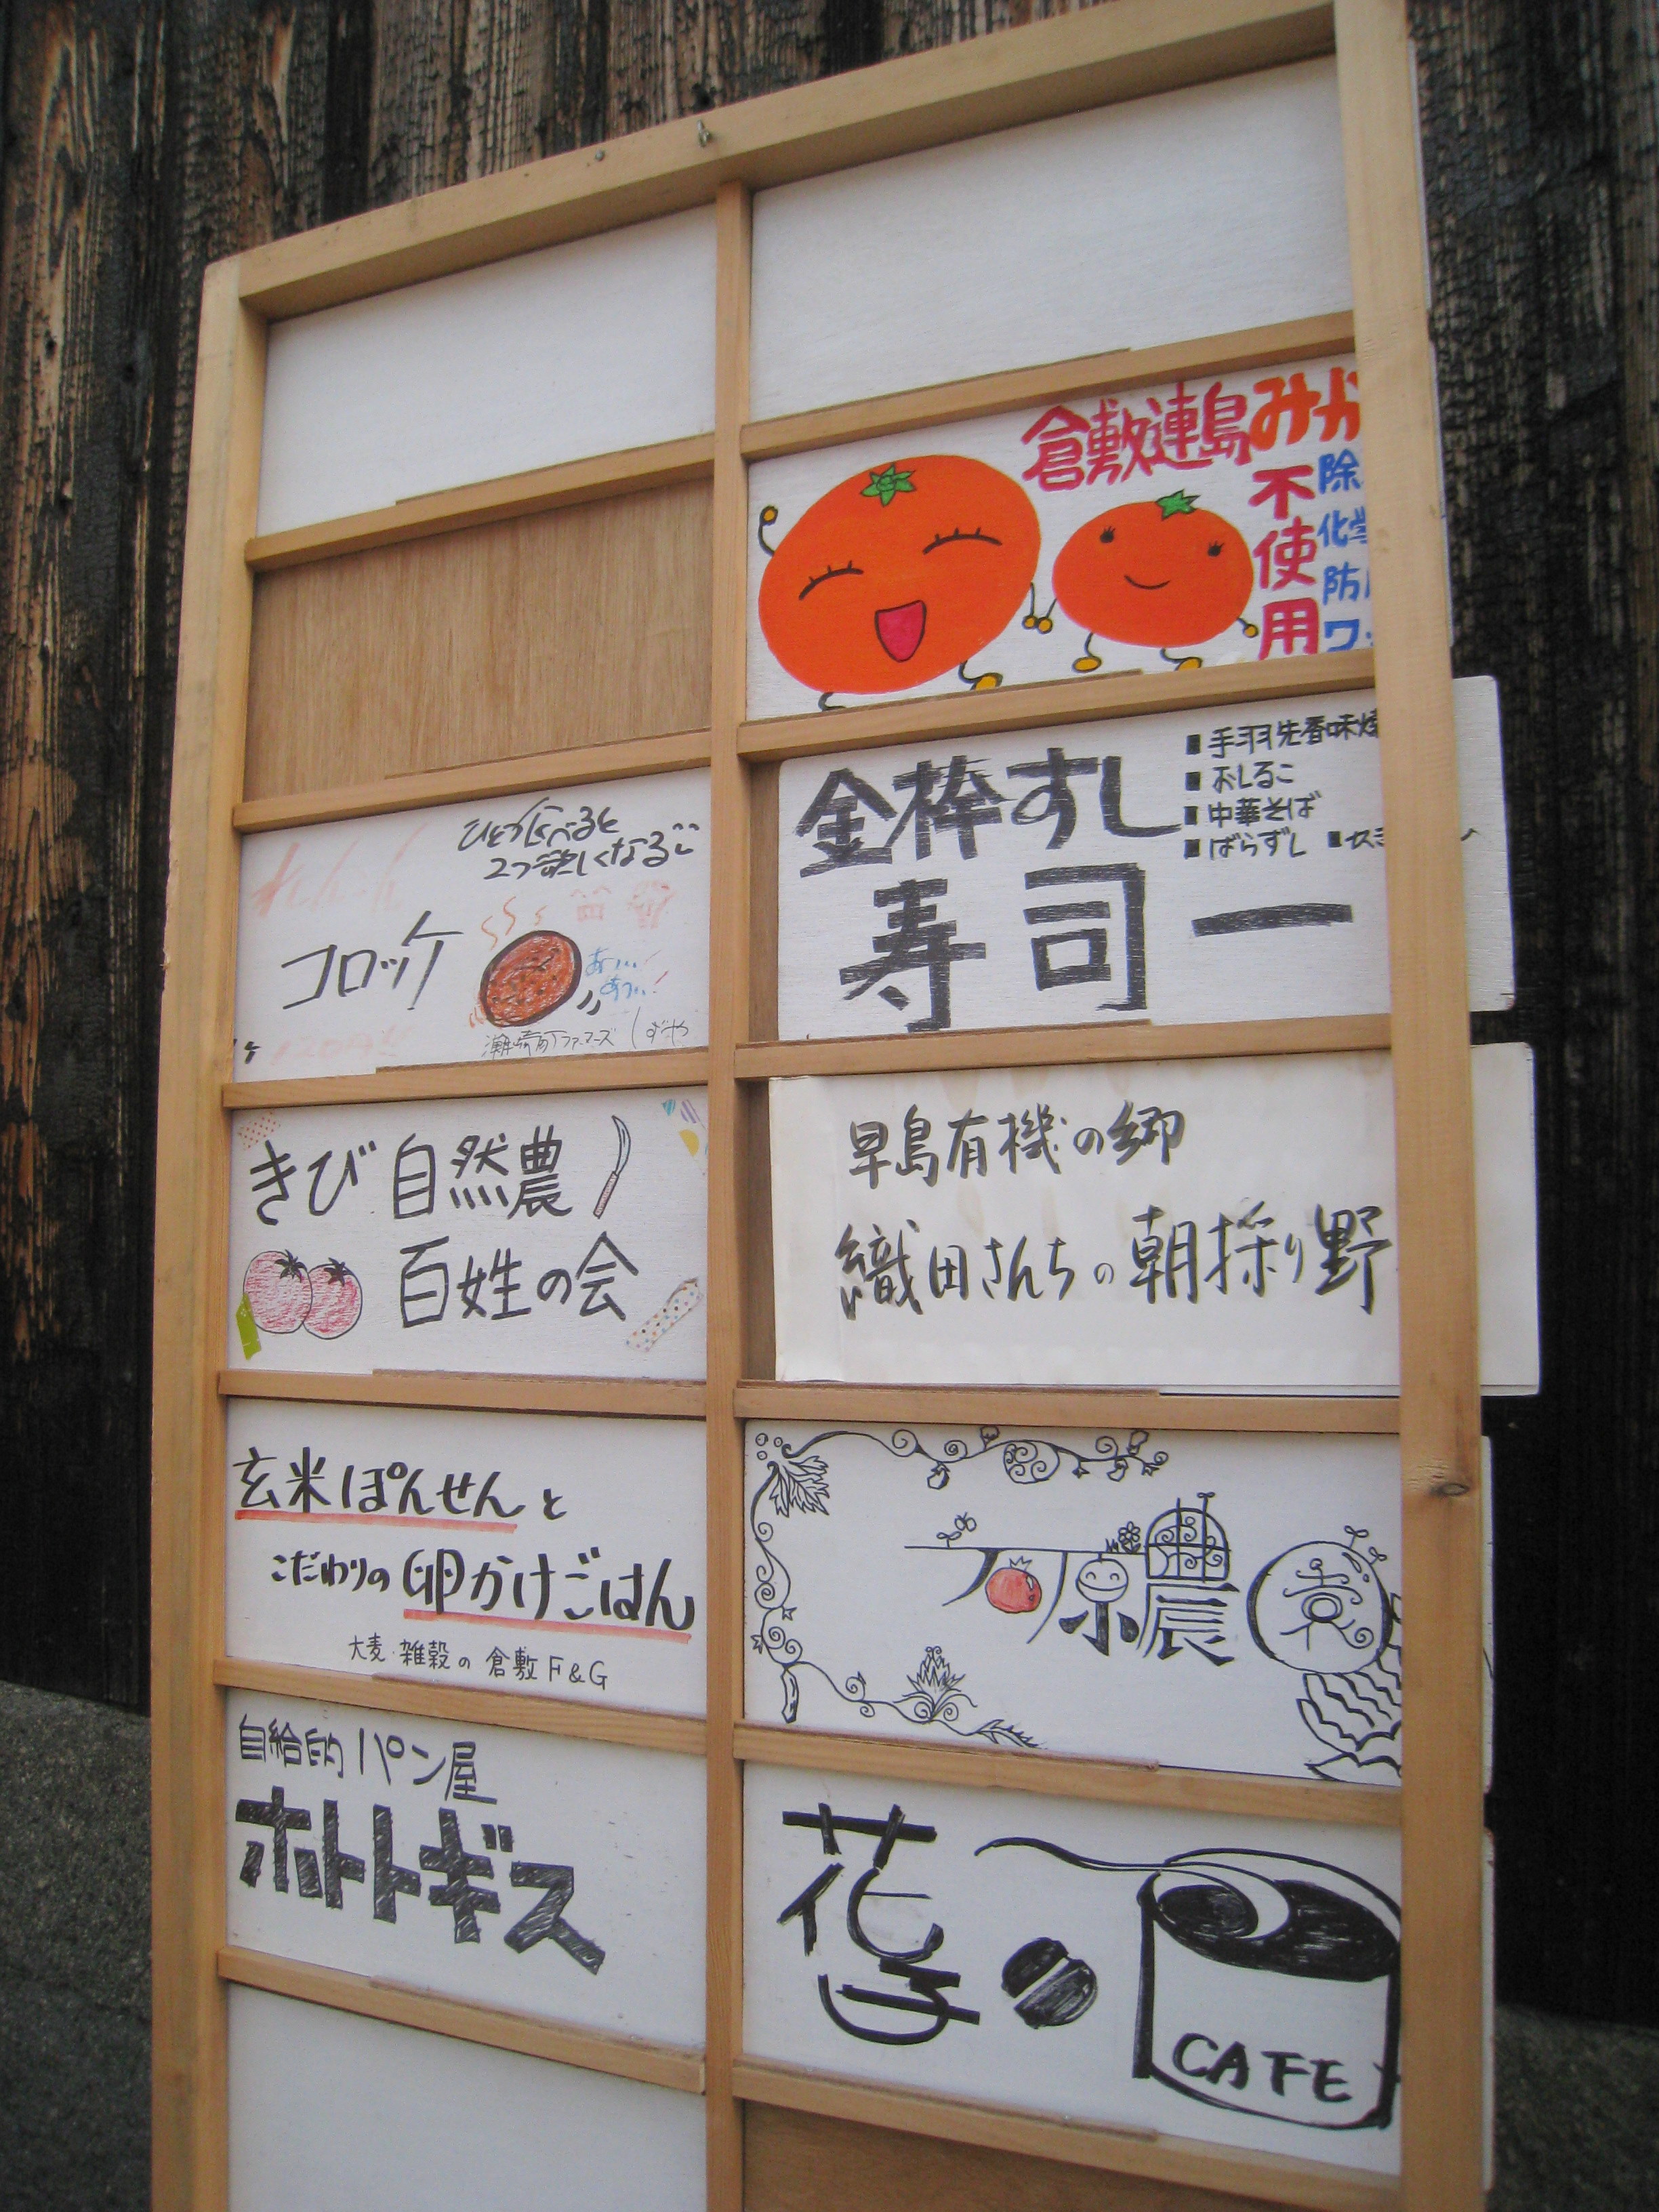 倉敷連島みか
不使用
除
化学
防
ワ
金棒すし
寿司一
■手羽先香味焼
■おしるこ
■中華そば
■ばらずし
ひとつ食べると
2つ欲しくなる
コロッケ
あつ、、
あつ、、
ファーマーズ しずや
早島有機の郷
織田さんちの朝採り野
きび自然農
百姓の会
玄米ぽんせんと
こだわりの卵かけごはん
大麦・雑穀の倉敷F&G
原農園
自給的パン屋
ホトトギス
花子
CAFE